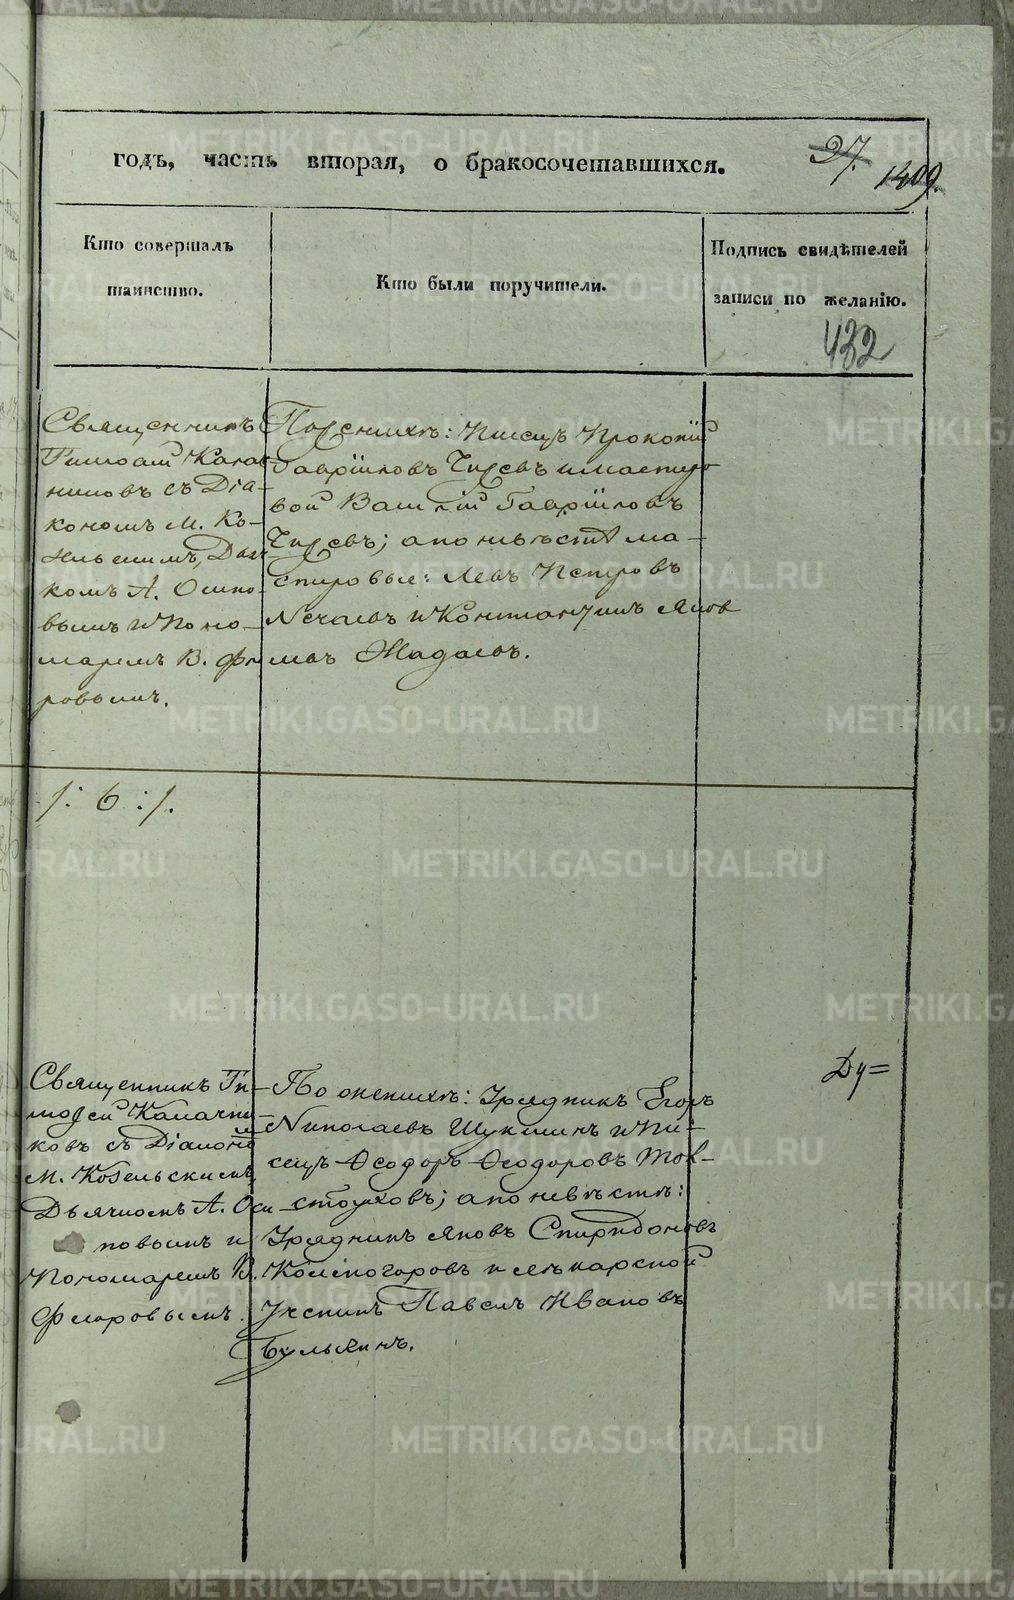 годъ, часть вторая, о бракосочетавшихся.
27.
1409.
Кто совершалъ таинство.
Кто были поручители.
Подпись свидѣтелей записи по желанію.
432
Священникъ
Тимоѳей Калач
никовъ съ Діа-
кономъ М. Ко-
зельскимъ, Дьяч
комъ А. Осипо-
вымъ и Поно-
маремъ В. Фло
ровымъ.
По женихѣ: Писецъ Прокопій
Гавріиловъ и мастеро
вой Василій Гавріиловъ
а по невѣстѣ ма-
стеровые: Левъ Петровъ
Нечаевъ и Константинъ Яков
левъ Жадаевъ.
/: 6 :/.
Священникъ Ти-
моѳей Калачни-
ковъ съ Діакономъ
М. Козельскимъ
Дьячкомъ А. Оси
повымъ и
Пономаремъ В.
Флоровымъ.
По женихѣ: Урядникъ Егоръ
Николаевъ Шукшинъ и Пи-
сецъ Ѳеодоръ Ѳеодоровъ Тол-
стоуховъ; а по невѣстѣ:
Урядникъ Яковъ Спиридоновъ
Колмогоровъ и лѣкарской
Ученикъ Павелъ Ивановъ
Булыгинъ.
Ду=
METRIKI.GASO-URAL.RU